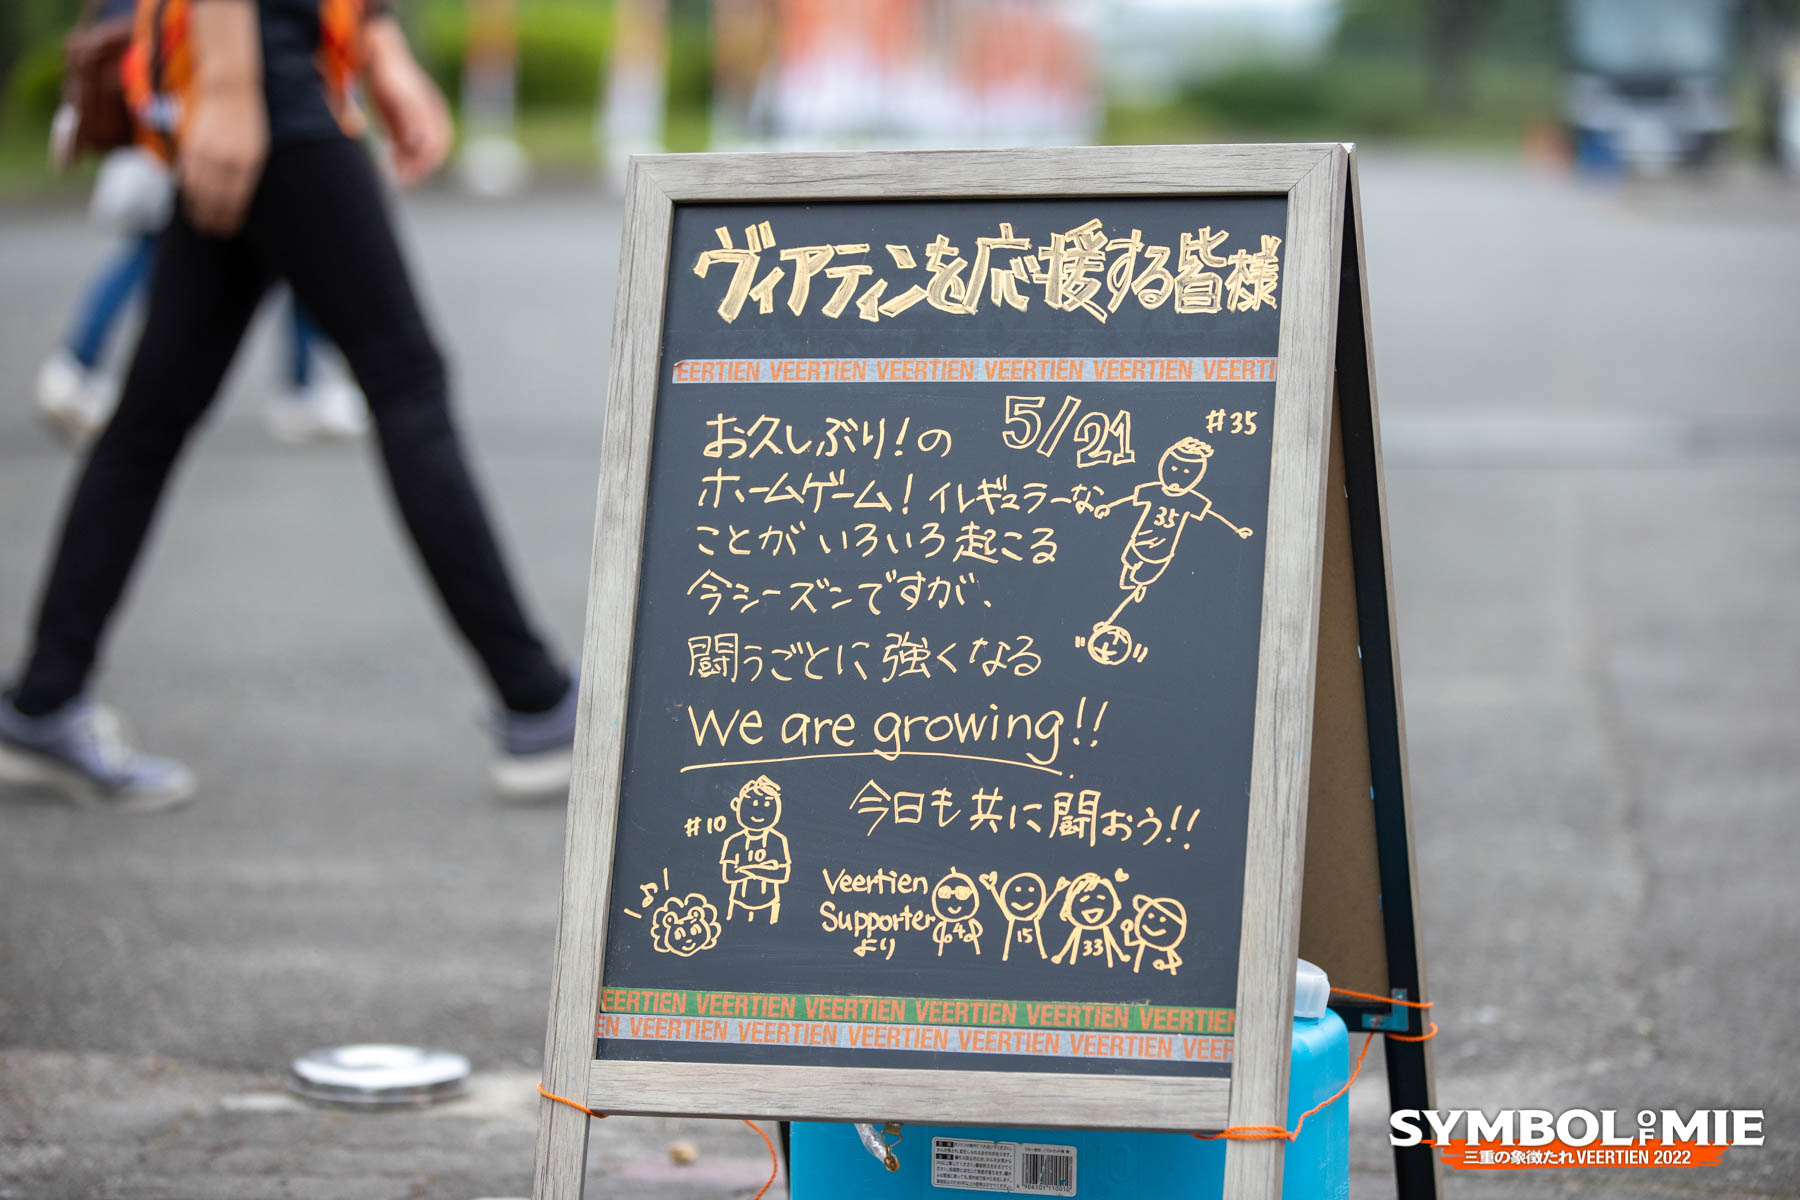 ヴィアティンを応援する皆様
EERTIEN VEERTIEN VEERTIEN VEERTIEN VEERTIEN VEERTI
お久しぶり!の 5/21
#35
ホームゲーム! イレギュラーな
35
ことがいろいろ起こる
今シーズンですが、
闘うごとに強くなる
We are growing!!
今日も共に闘おう!!
#10
10
Veertien
Supporter
より
4 15 33
EERTIEN VEERTIEN VEERTIEN VEERTIEN VEERTIEN VEERTIEN
EN VEERTIEN VEERTIEN VEERTIEN VEERTIEN VEERTIEN VEER
4 906305 110010
SYMBOL OF MIE
三重の象徴たれ VEERTIEN 2022